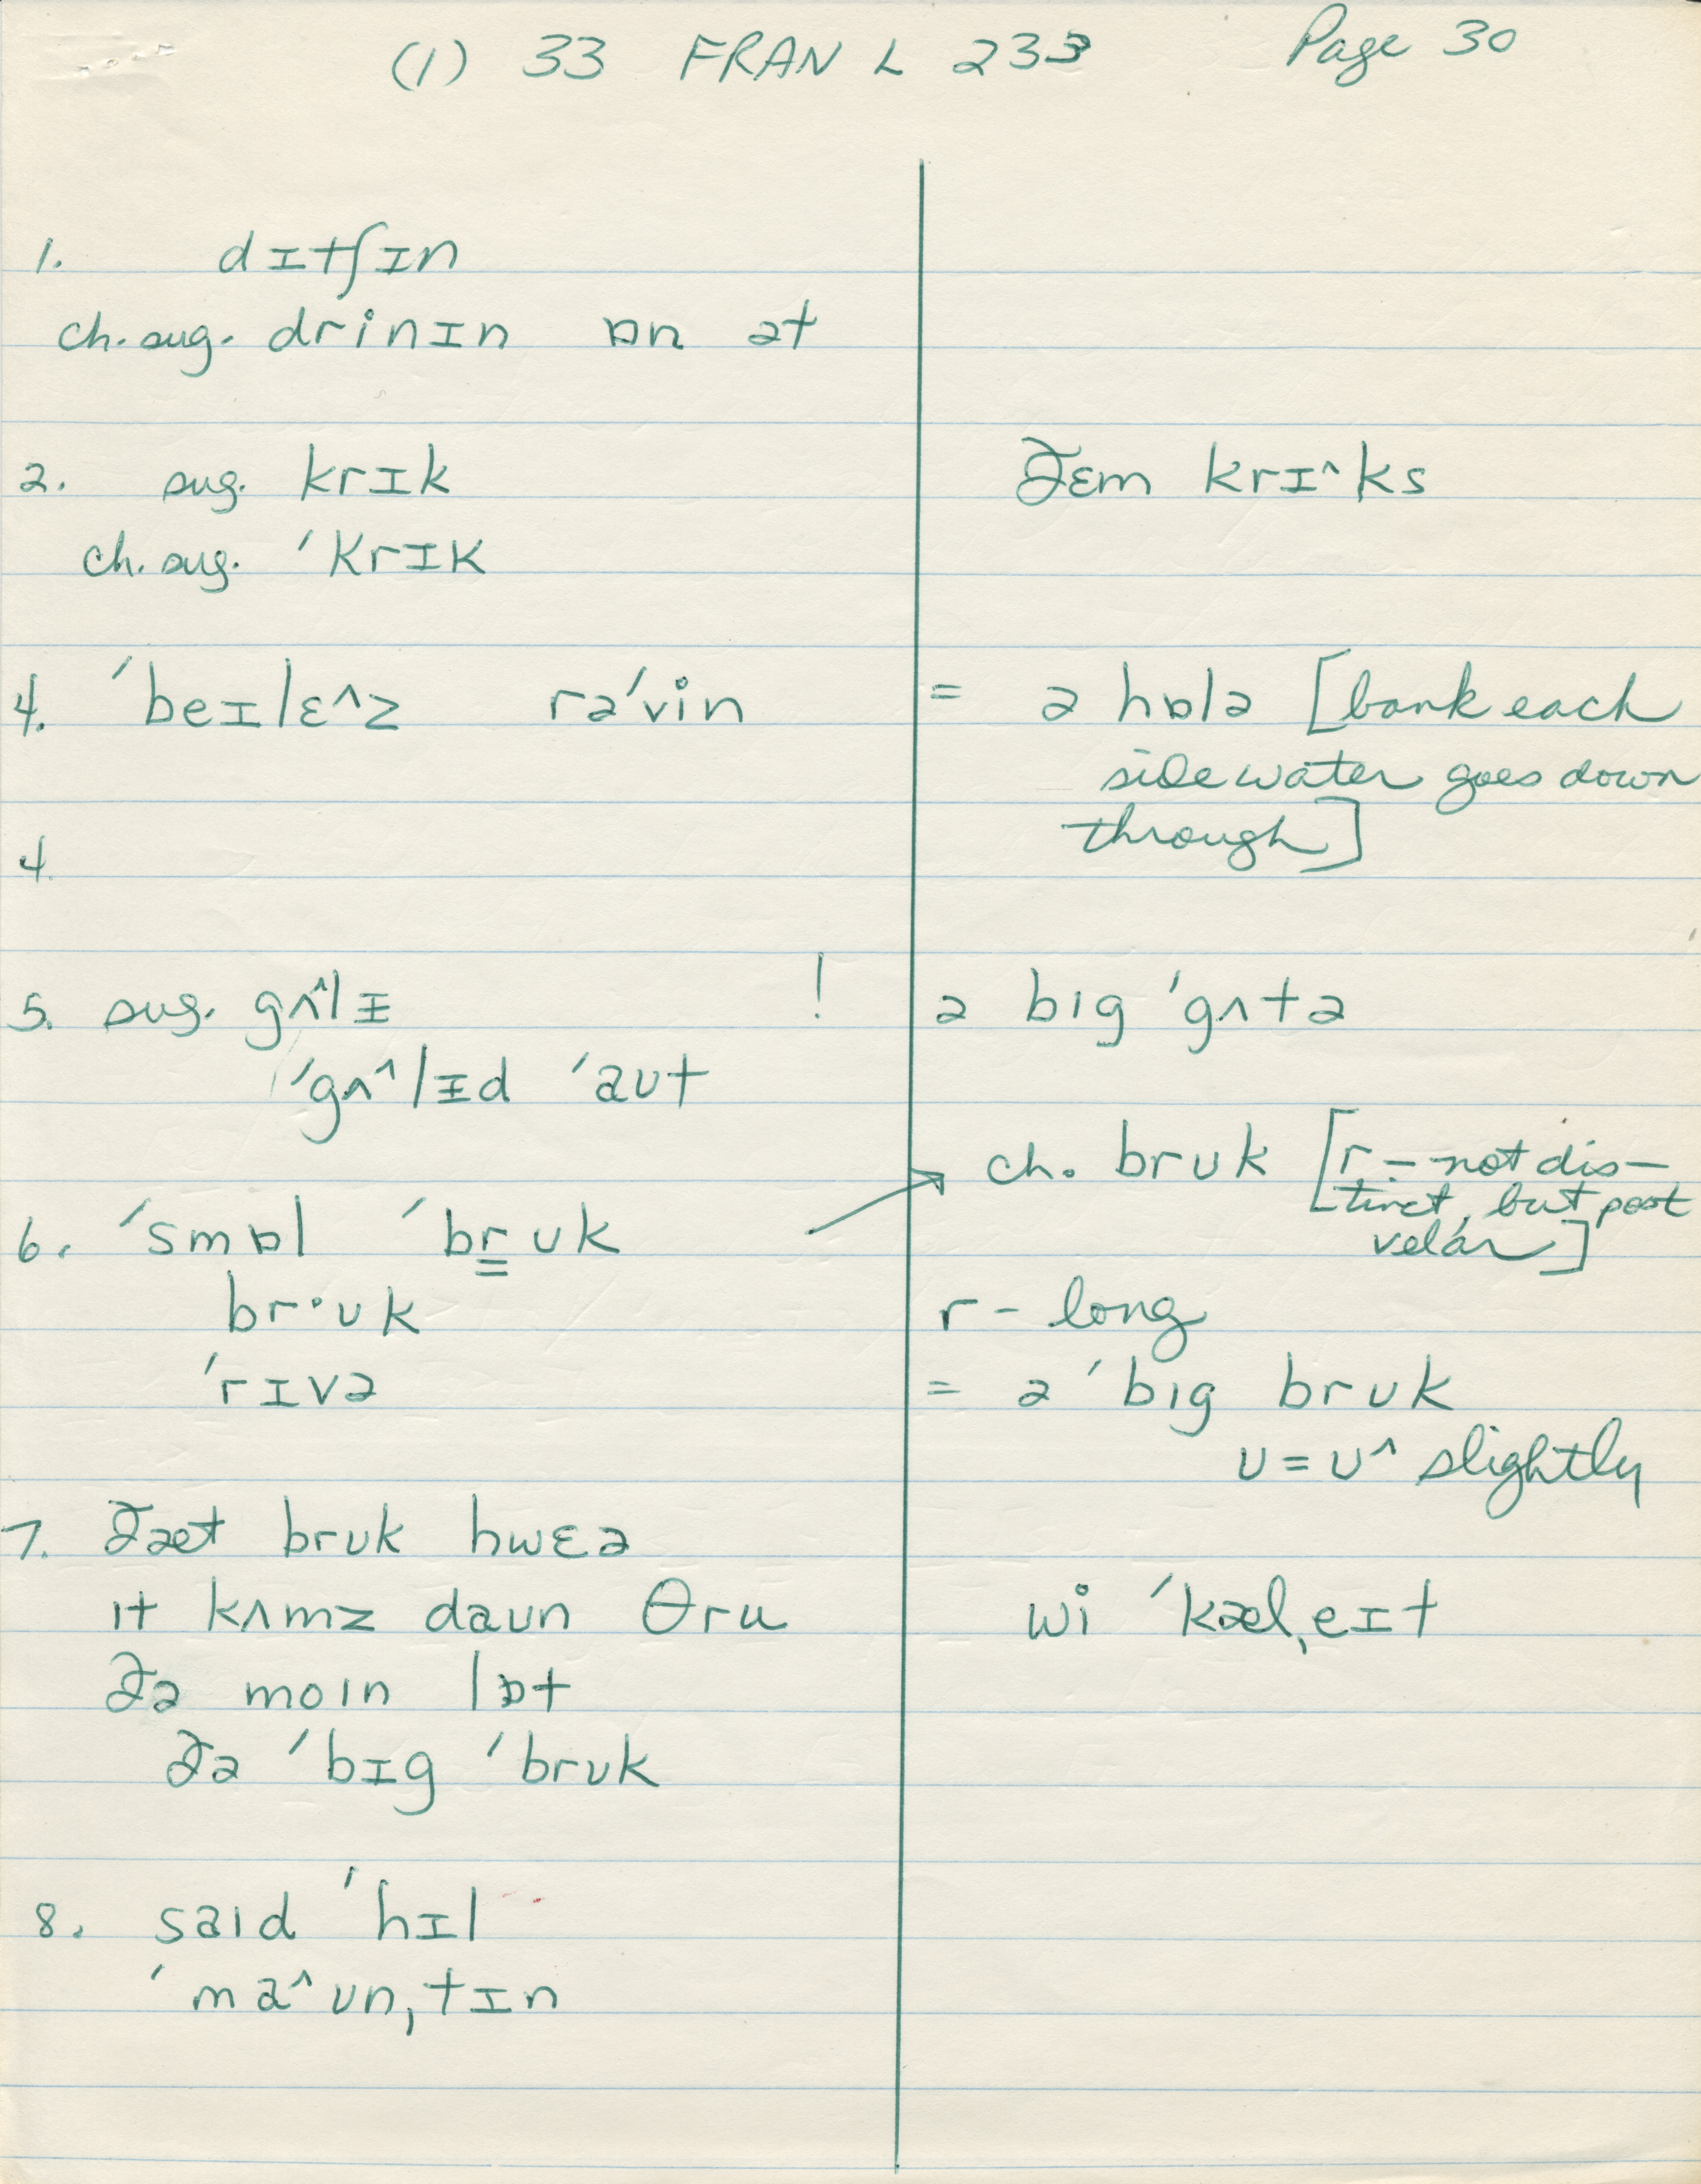 (1) 33 FRAN L 233 Page 30
1. dɪtʃɪn
ch. sug. drinɪn ɒn ət
2. sug. krɪk ðɛm krɪ^ks
ch. sug. ˈkrɪk
4. ˈbeɪlɛ^z rəˈvin = ə hɒlə [bank each
side water goes down
through]
4.
5. sug. gʌ^lɪ ! ə bıg ˈgʌtə
ˈgʌ^lɪd ˈaʊt
ch. brʊk [r – not dis-
tinct, but post
velar]
6. ˈsmɒl ˈbr̳ʊk
br·ʊk r – long
ˈrɪvə = ə ˈbıg brʊk
ʊ = ʊ^ slightly
7. ðæt brʊk hwɛə
ıt kʌmz daʊn θru wi ˈkælˌeɪt
ðə moın lɒt
ðə ˈbɪg ˈbrʊk
8. saıd ˈhɪl
ˈma^ʊnˌtɪn